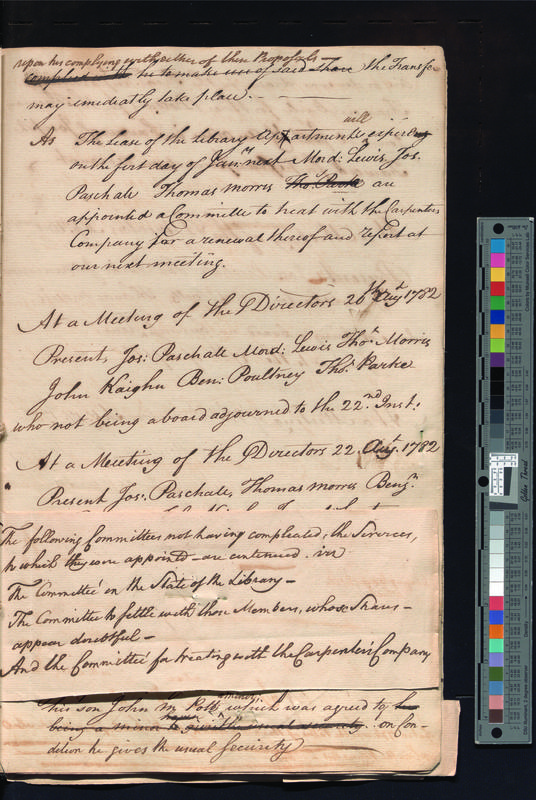 upon his complying with either of these Proposals
complied with he to make use of said Share the Transfe
may imediatly take place. —
will
As The Lease of the Library Apartments expires
on the first day of Janry next Mord: Lewis, Jos.
Paschall Thomas Morris Thos. Parke are
appointed a Committe to treat with the Carpenters
Company for a renewal thereof and report at
our next meeting.
At a Meeting of the Directors Augt 1782
Present, Jos: Paschall Mord: Lewis Thos. Morris
John Kaighn Ben: Poultney Thos. Parke
who not being a board adjourned to the 22nd Inst:
At a Meeting of the Directors 22. Augt. 1782
Present Jos. Paschall, Thomas Morris Benjn.
The following Committees not having compleated, the Services,
to which they were appointd — are continued. viz
The Committee on the State of the Library —
The Committee to settle with those Members, whose Shares —
appear doubtful —
And the Committee for treating with the Carpenters Company
a minor,
his son John Potts which was agreed to he
being a minor usual security. on Con-
dition he gives the usual Security